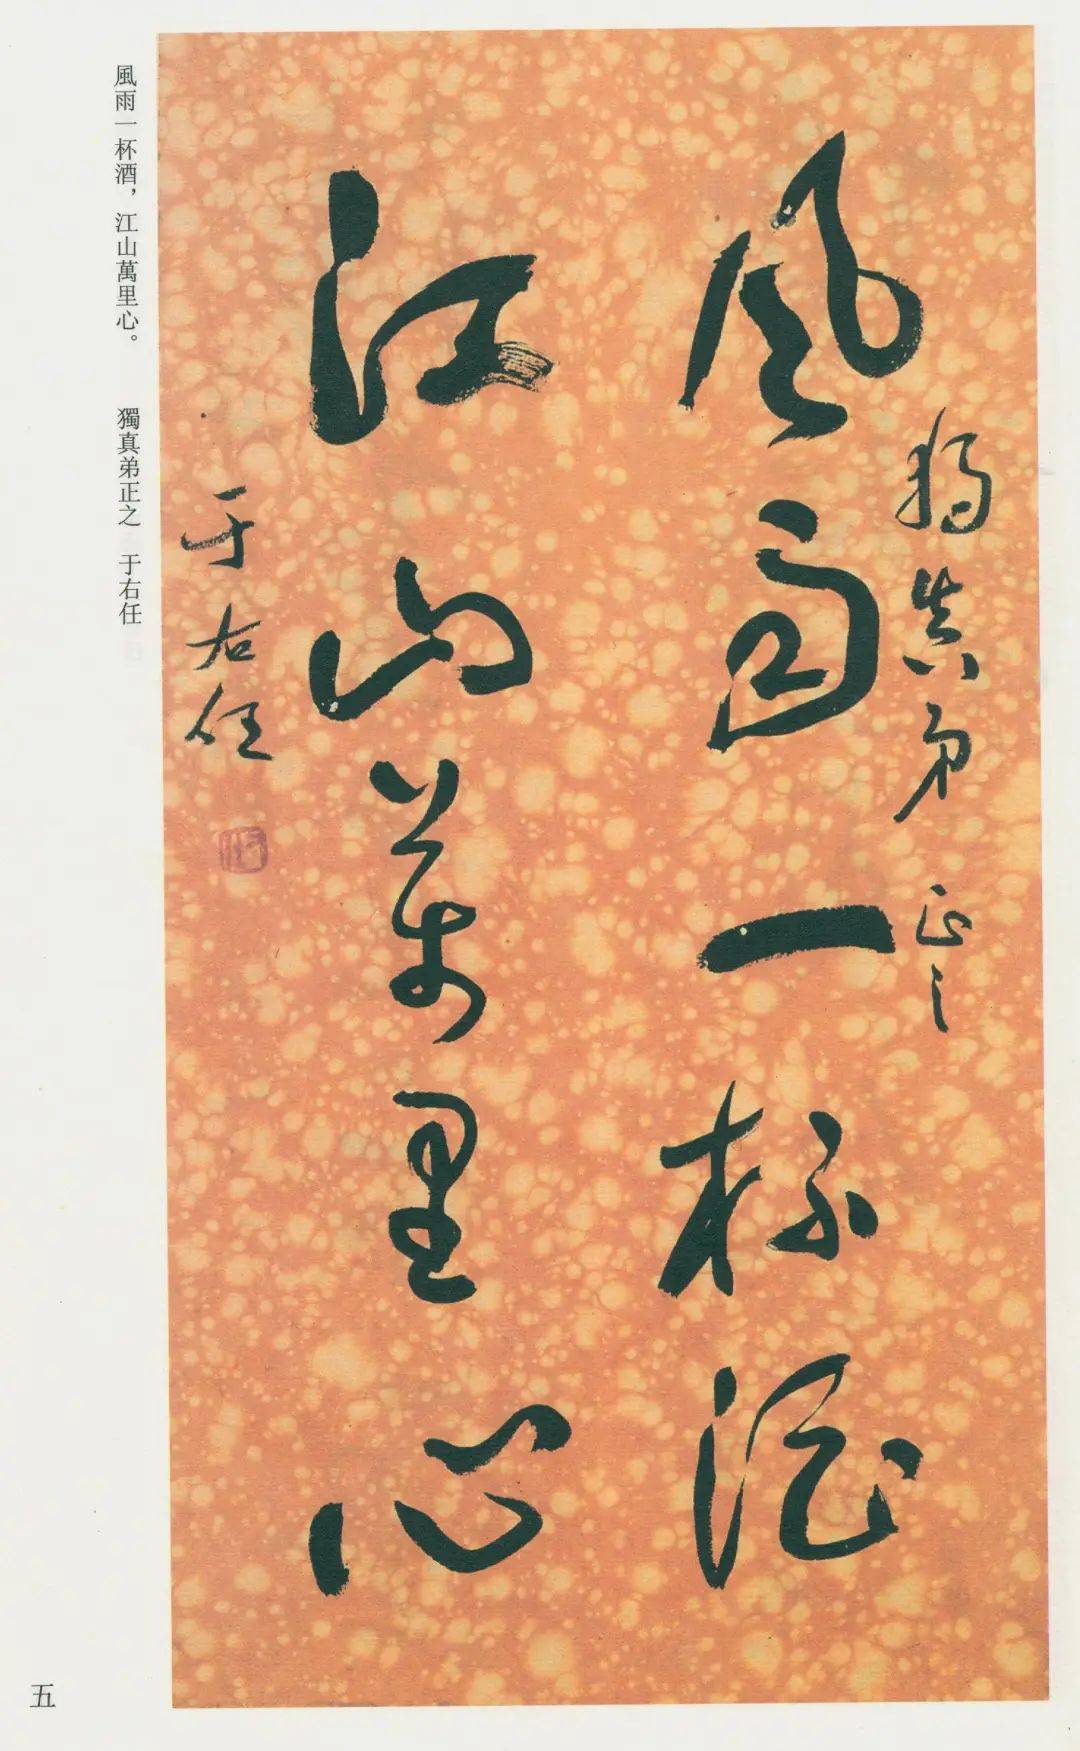 獨真弟正之
风雨一杯酒
江山萬里心
于右任
風雨一杯酒，江山萬里心。 獨真弟正之 于右任
五